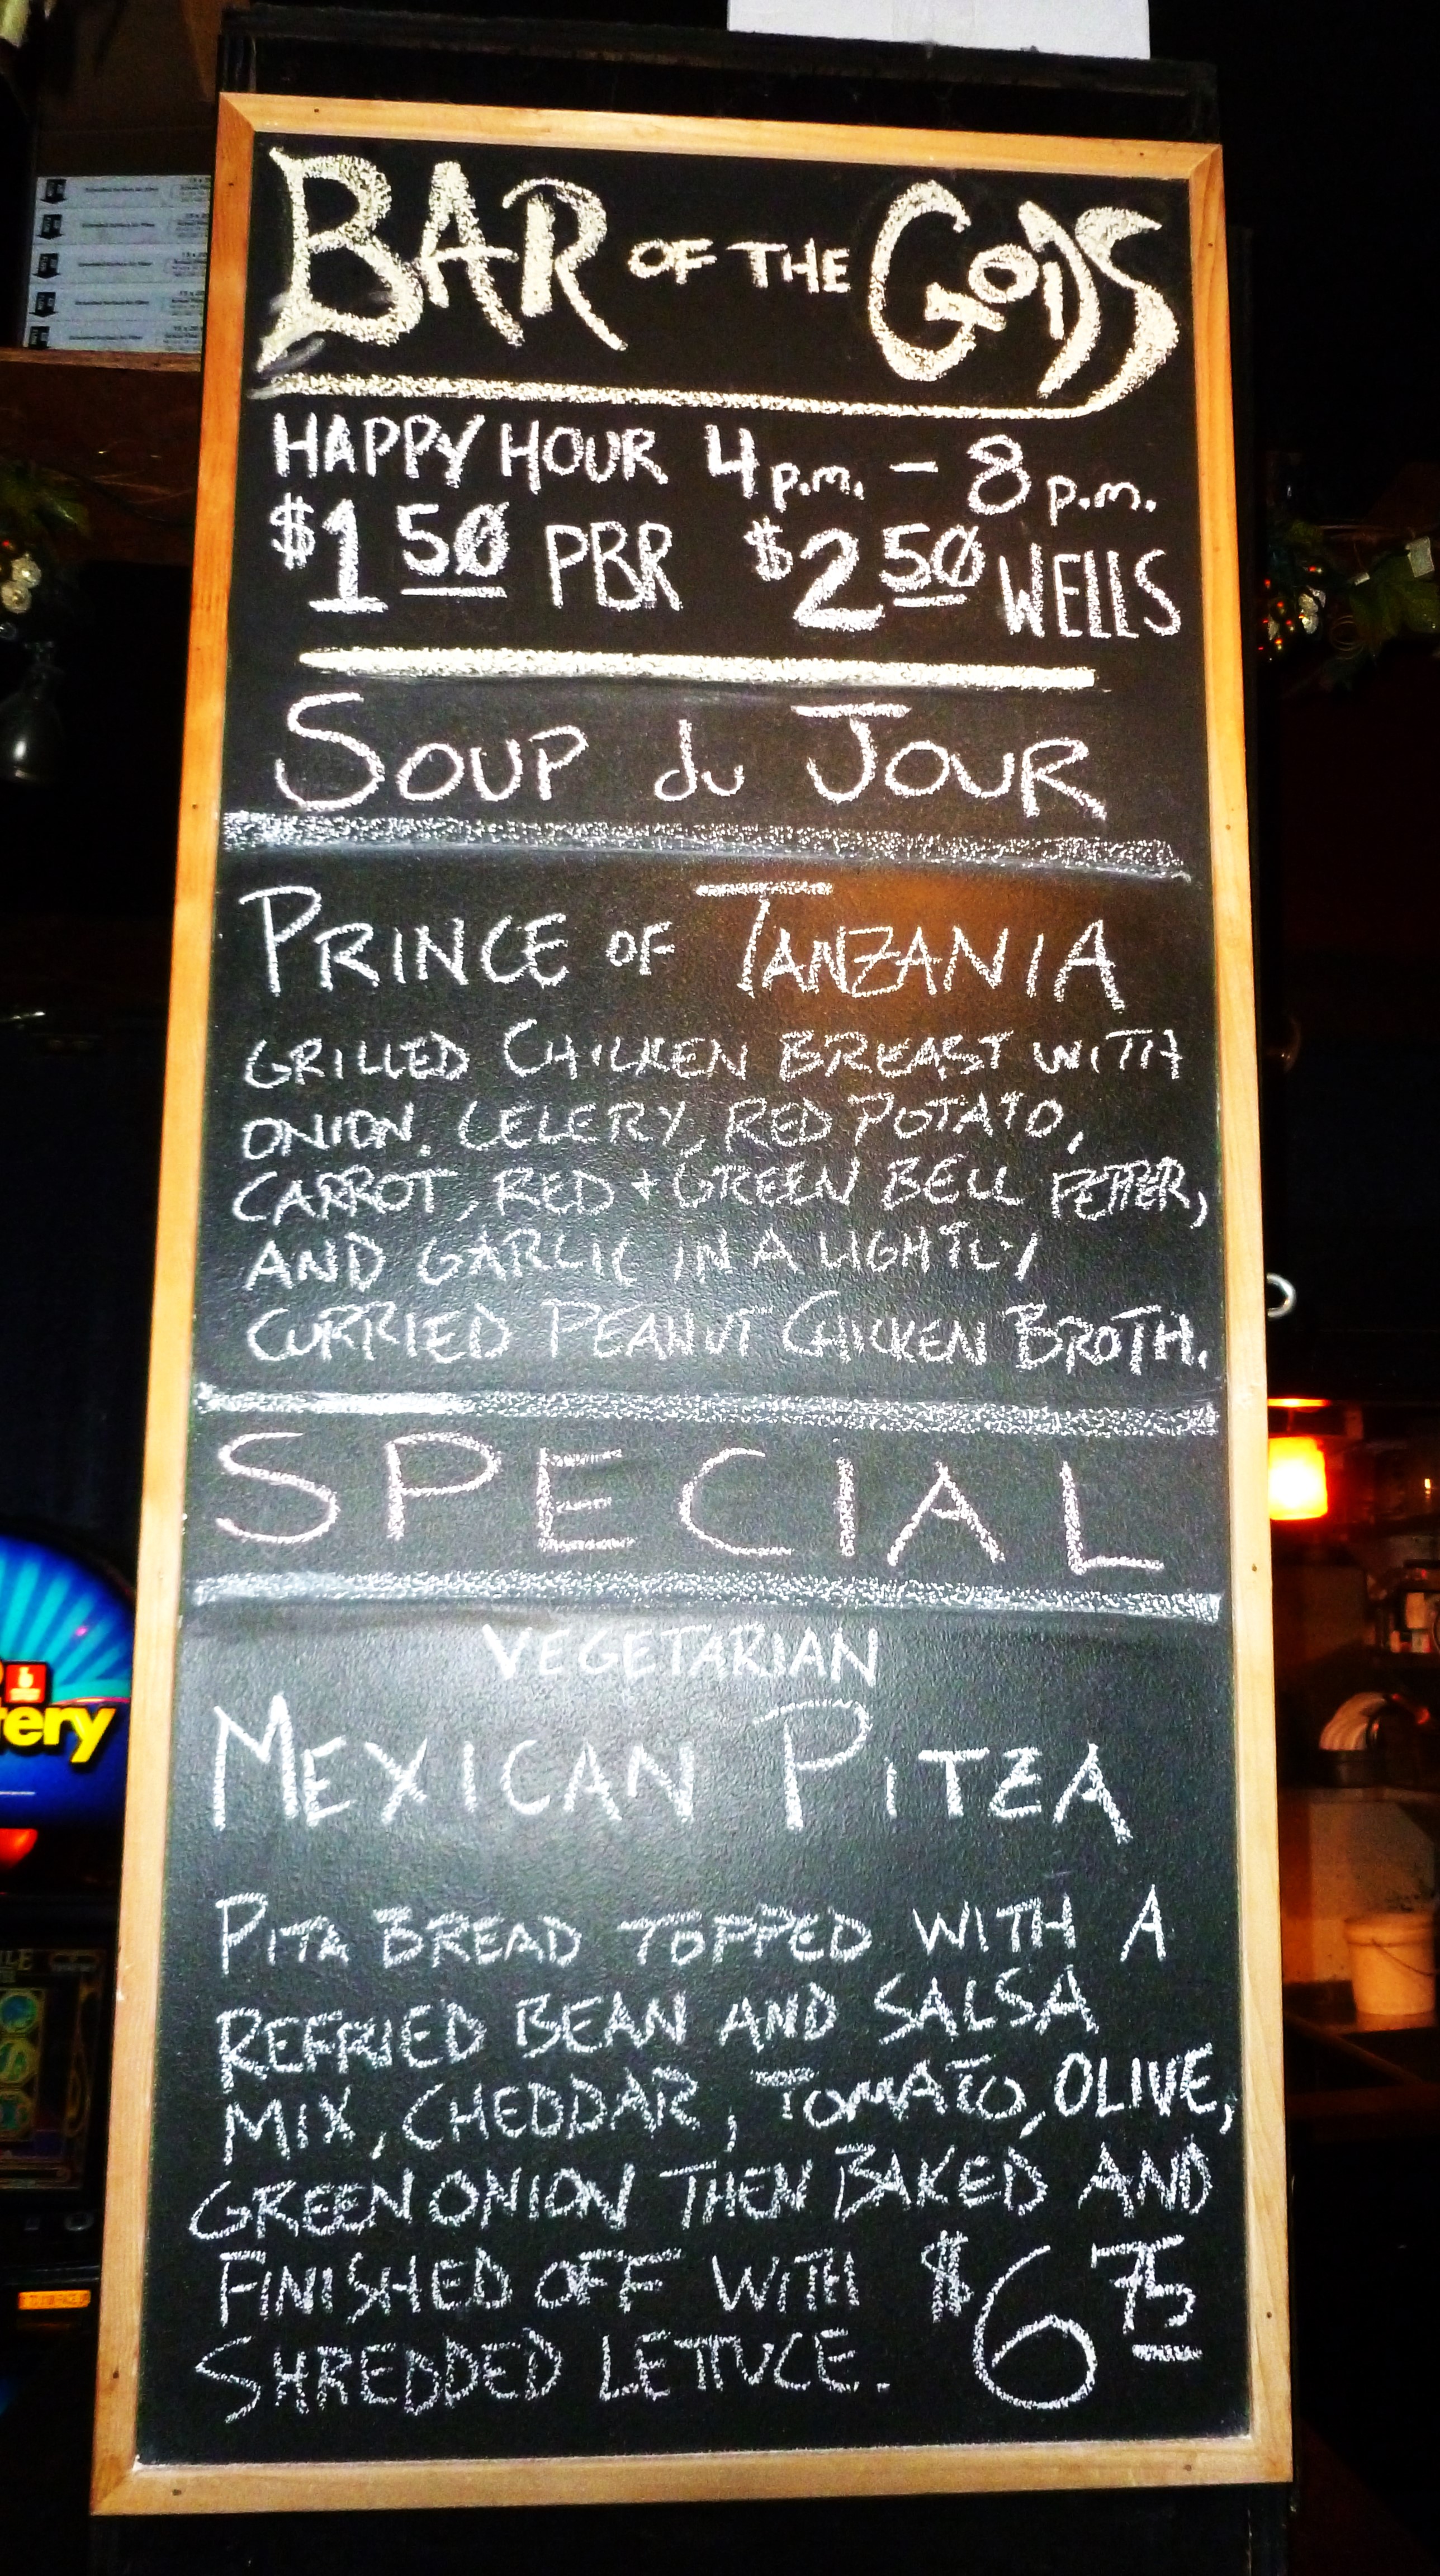 BAR OF THE GODS
HAPPY HOUR 4 p.m. - 8 p.m.
$1 50 PBR $2 50 WELLS
SOUP du JOUR
PRINCE OF TANZANIA
GRILLED CHICKEN BREAST WITH
ONION, CELERY, RED POTATO,
CARROT, RED + GREEN BELL PEPPER,
AND GARLIC IN A LIGHTLY
CURRIED PEANUT CHICKEN BROTH.
SPECIAL
VEGETARIAN
MEXICAN PITZA
PITA BREAD TOPPED WITH A
REFRIED BEAN AND SALSA
MIX, CHEDDAR, TOMATO, OLIVE,
GREEN ONION THEN BAKED AND
FINISHED OFF WITH $6 75
SHREDDED LETTUCE.
tery